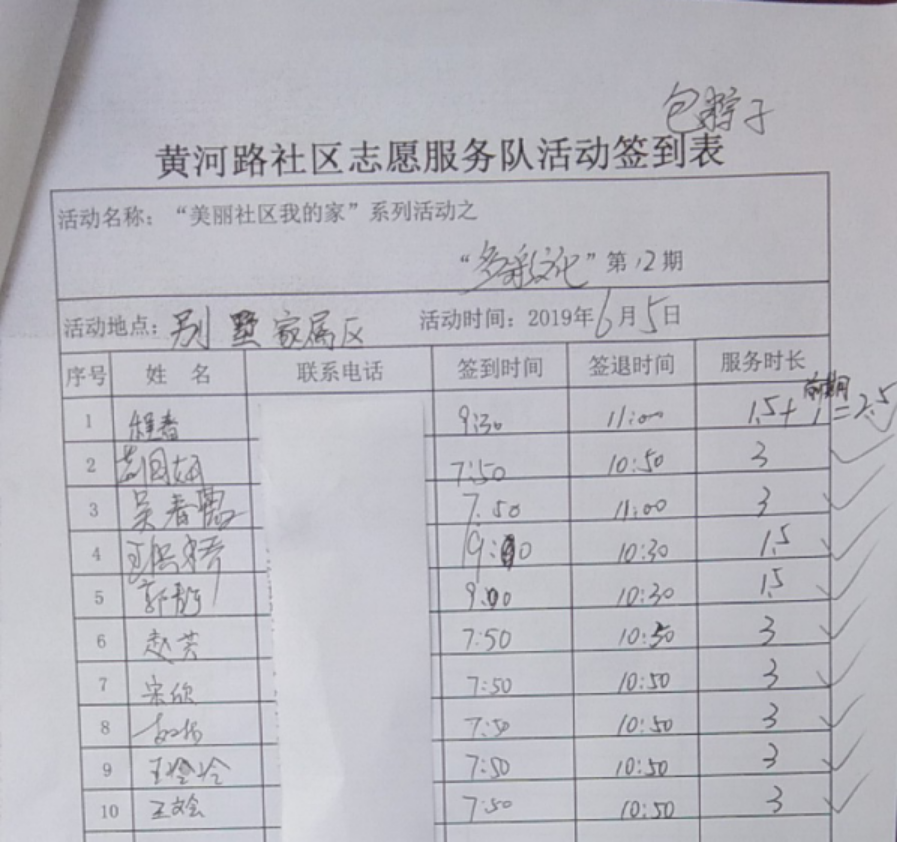 包粽子
黄河路社区志愿服务队活动签到表
活动名称：“美丽社区我的家”系列活动之
“多彩文化”第12期
活动地点：别墅家属区 活动时间：2019年6月5日
序号 姓 名 联系电话 签到时间 签退时间 服务时长
1 9:30 11:00 1.5+1=2.5
2 7:50 10:50 3
3 吴春霞 7:50 11:00 3
4 10:30 1.5
5 郭 9:00 10:30 1.5
6 赵芸 7:50 10:50 3
7 宋欣 7:50 10:50 3
8 7:50 10:50 3
9 王玲玲 7:50 10:50 3
10 王文会 7:50 10:50 3